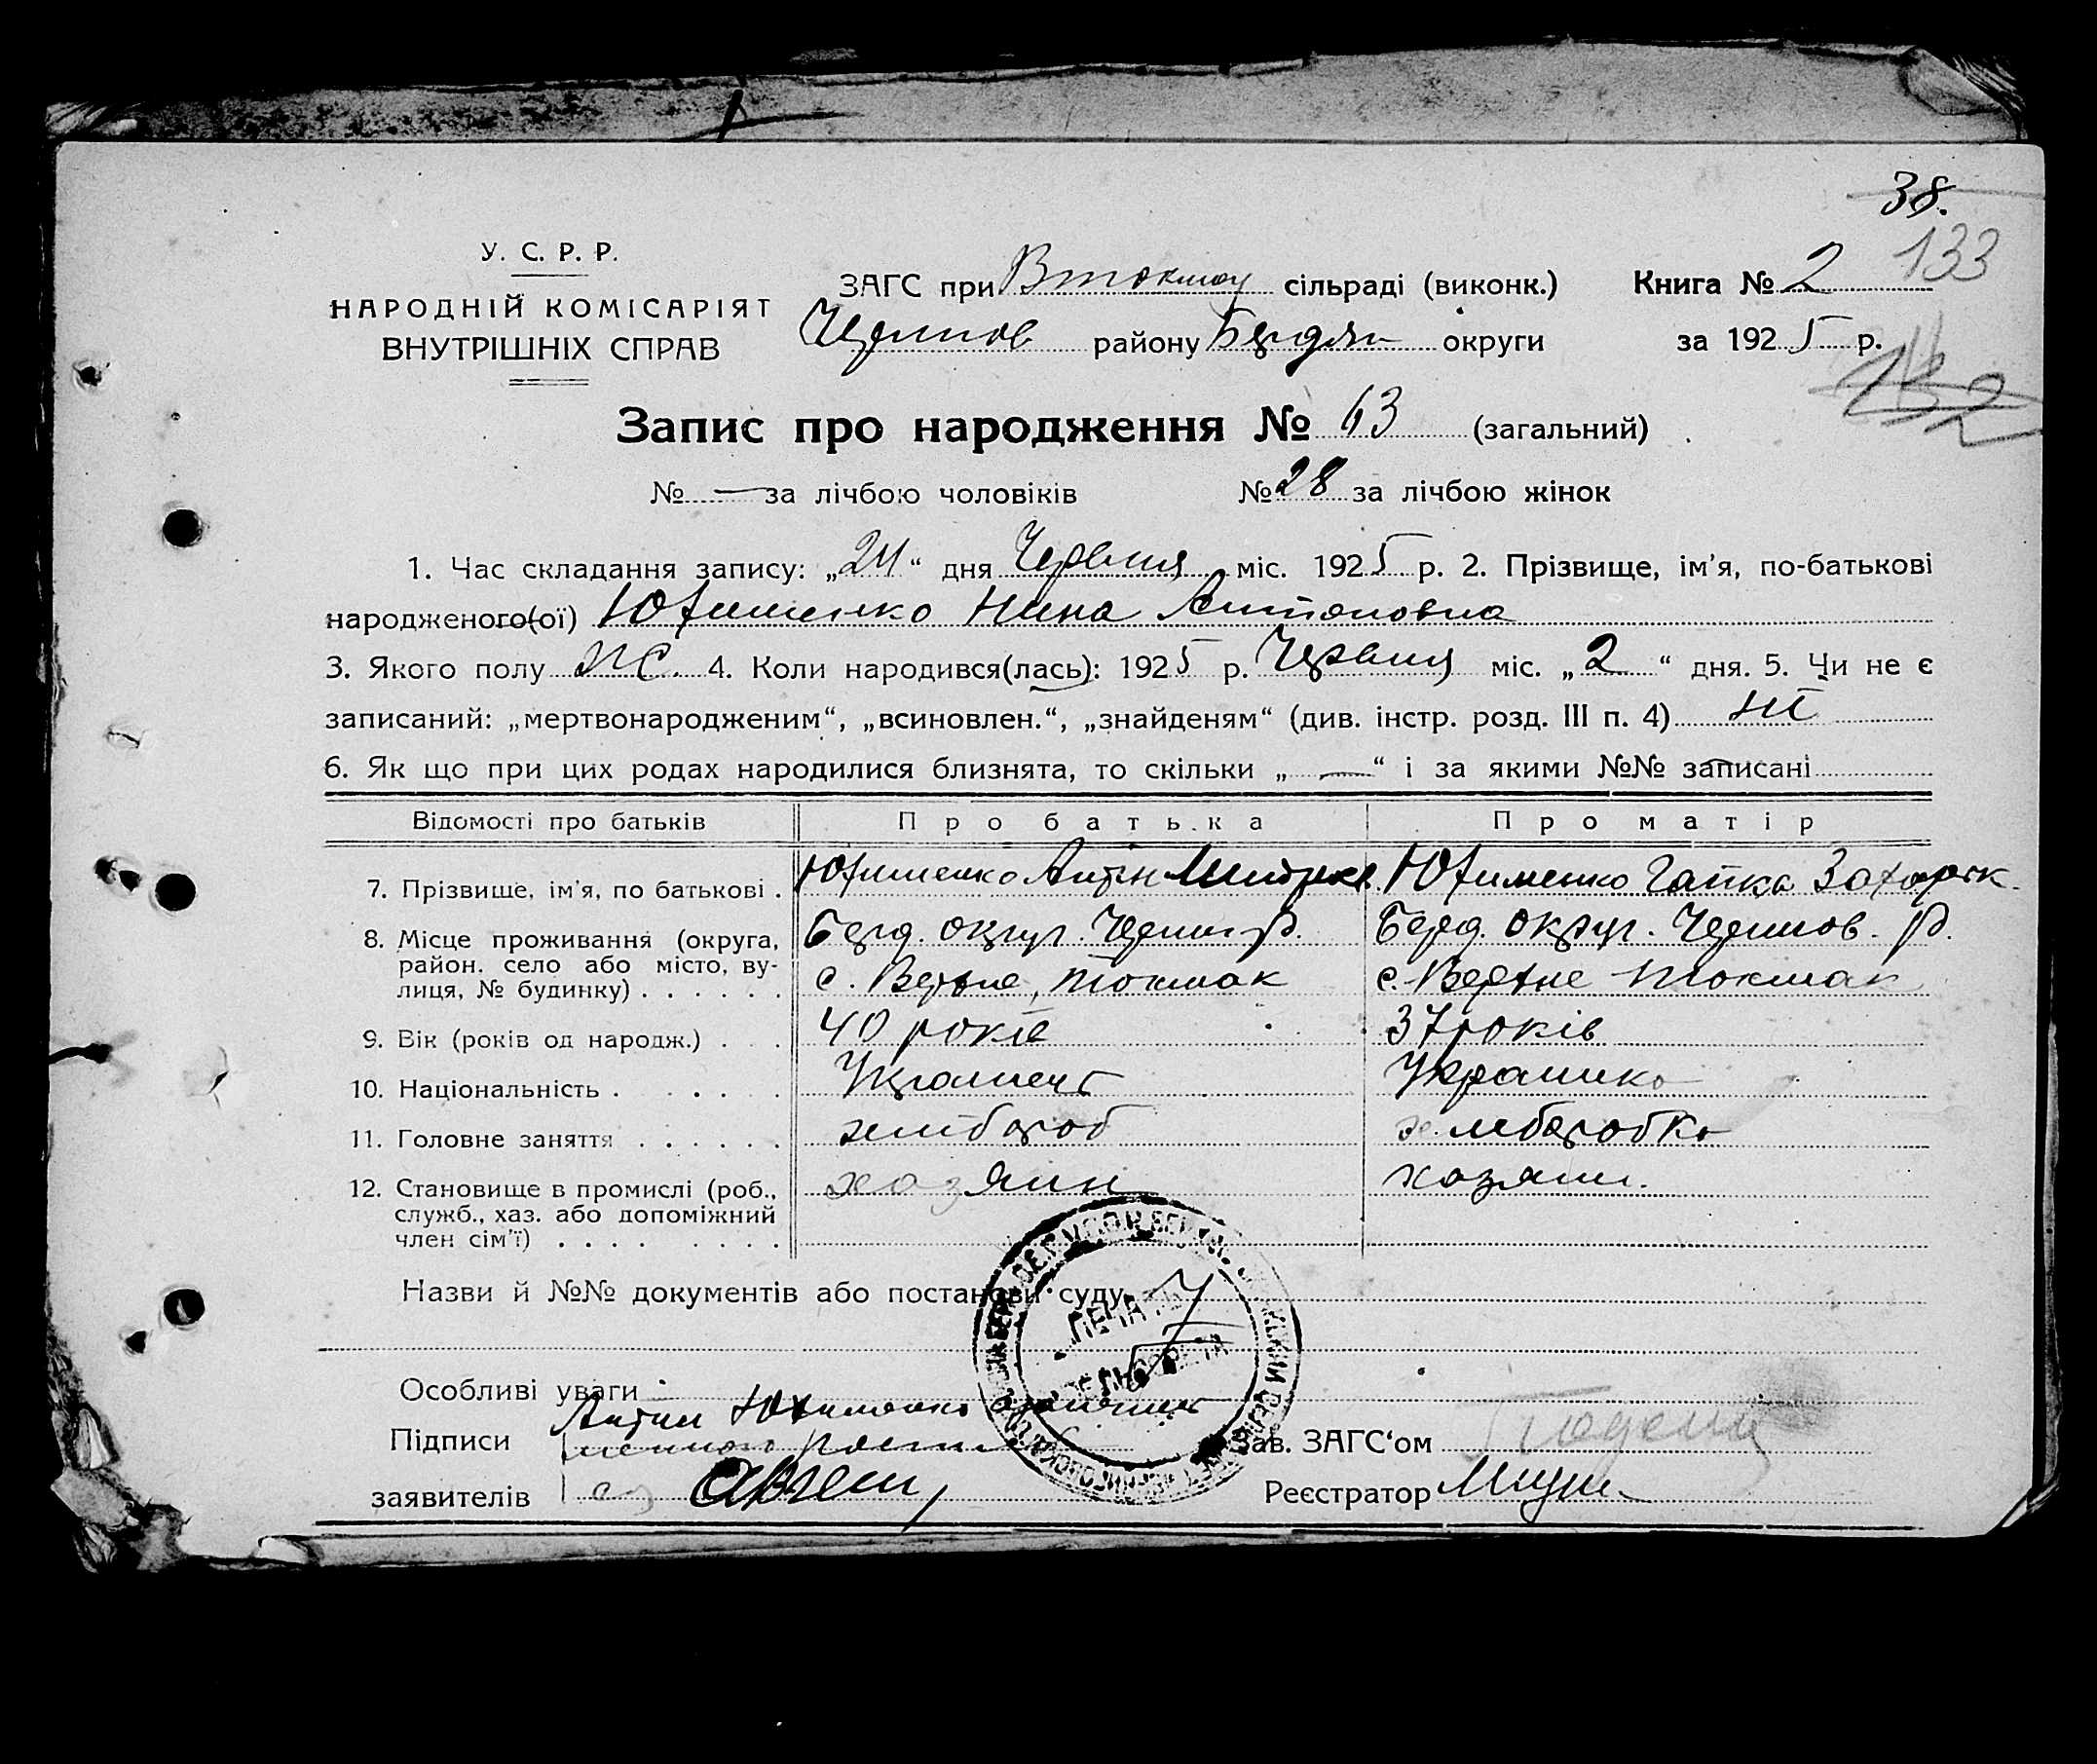 38.
133
У. С. Р. Р.
НАРОДНІЙ КОМІСАРІЯТ
ВНУТРІШНІХ СПРАВ
ЗАГС при Втокмац сільраді (виконк.) Книга № 2
району Бердян округи за 1925 р.
132
Запис про народження № 63 (загальний)
№ — за лічбою чоловіків № 28 за лічбою жінок
1. Час складання запису: „24“ дня Червня міс. 1925 р. 2. Прізвище, ім'я, по-батькові
народженого(ої) Юхименко Нина Антоновна
3. Якого полу ж. 4. Коли народився(лась): 1925 р. Червня міс. „2“ дня. 5. Чи не є
записаний: „мертвонародженим“, „всиновлен.“, „знайденям“ (див. інстр. розд. III п. 4) ні
6. Як що при цих родах народилися близнята, то скільки „—“ і за якими №№ записані
Відомості про батьків Про батька Про матір
7. Прізвище, ім'я, по батькові . Юхименко Антін Юхименко Гапка Захарок.
8. Місце проживання (округа, район. село або місто, вулиця, № будинку) . . . . . . Берд. округ. Черниг р. Берд. округ. Чернигов. р.
с. Верхне, Токмак с. Верхне Токмак
9. Вік (років од народж.) . . . 40 років 37 років
10. Національність . . . . . Українець Українка
11. Головне заняття . . . . . . хлібороб хлеборобка
12. Становище в промислі (роб., служб., хаз. або допоміжний член сім'ї) . . . . . . . . хозяин хозяин.
Назви й №№ документів або постанови суду
ПЕЧАТЬ
Особливі уваги
Антин Юхименко
Підписи Зав. ЗАГС‘ом
заявителів Реєстратор